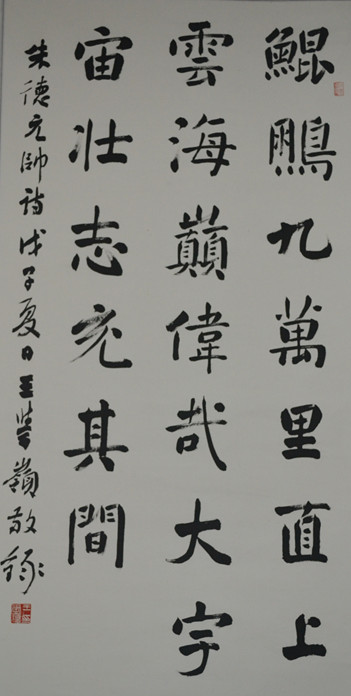 鯤鵬九萬里直上
雲海巔偉哉大宇
宙壯志充其間
朱德元帥詩戊子夏日王嶺敬錄